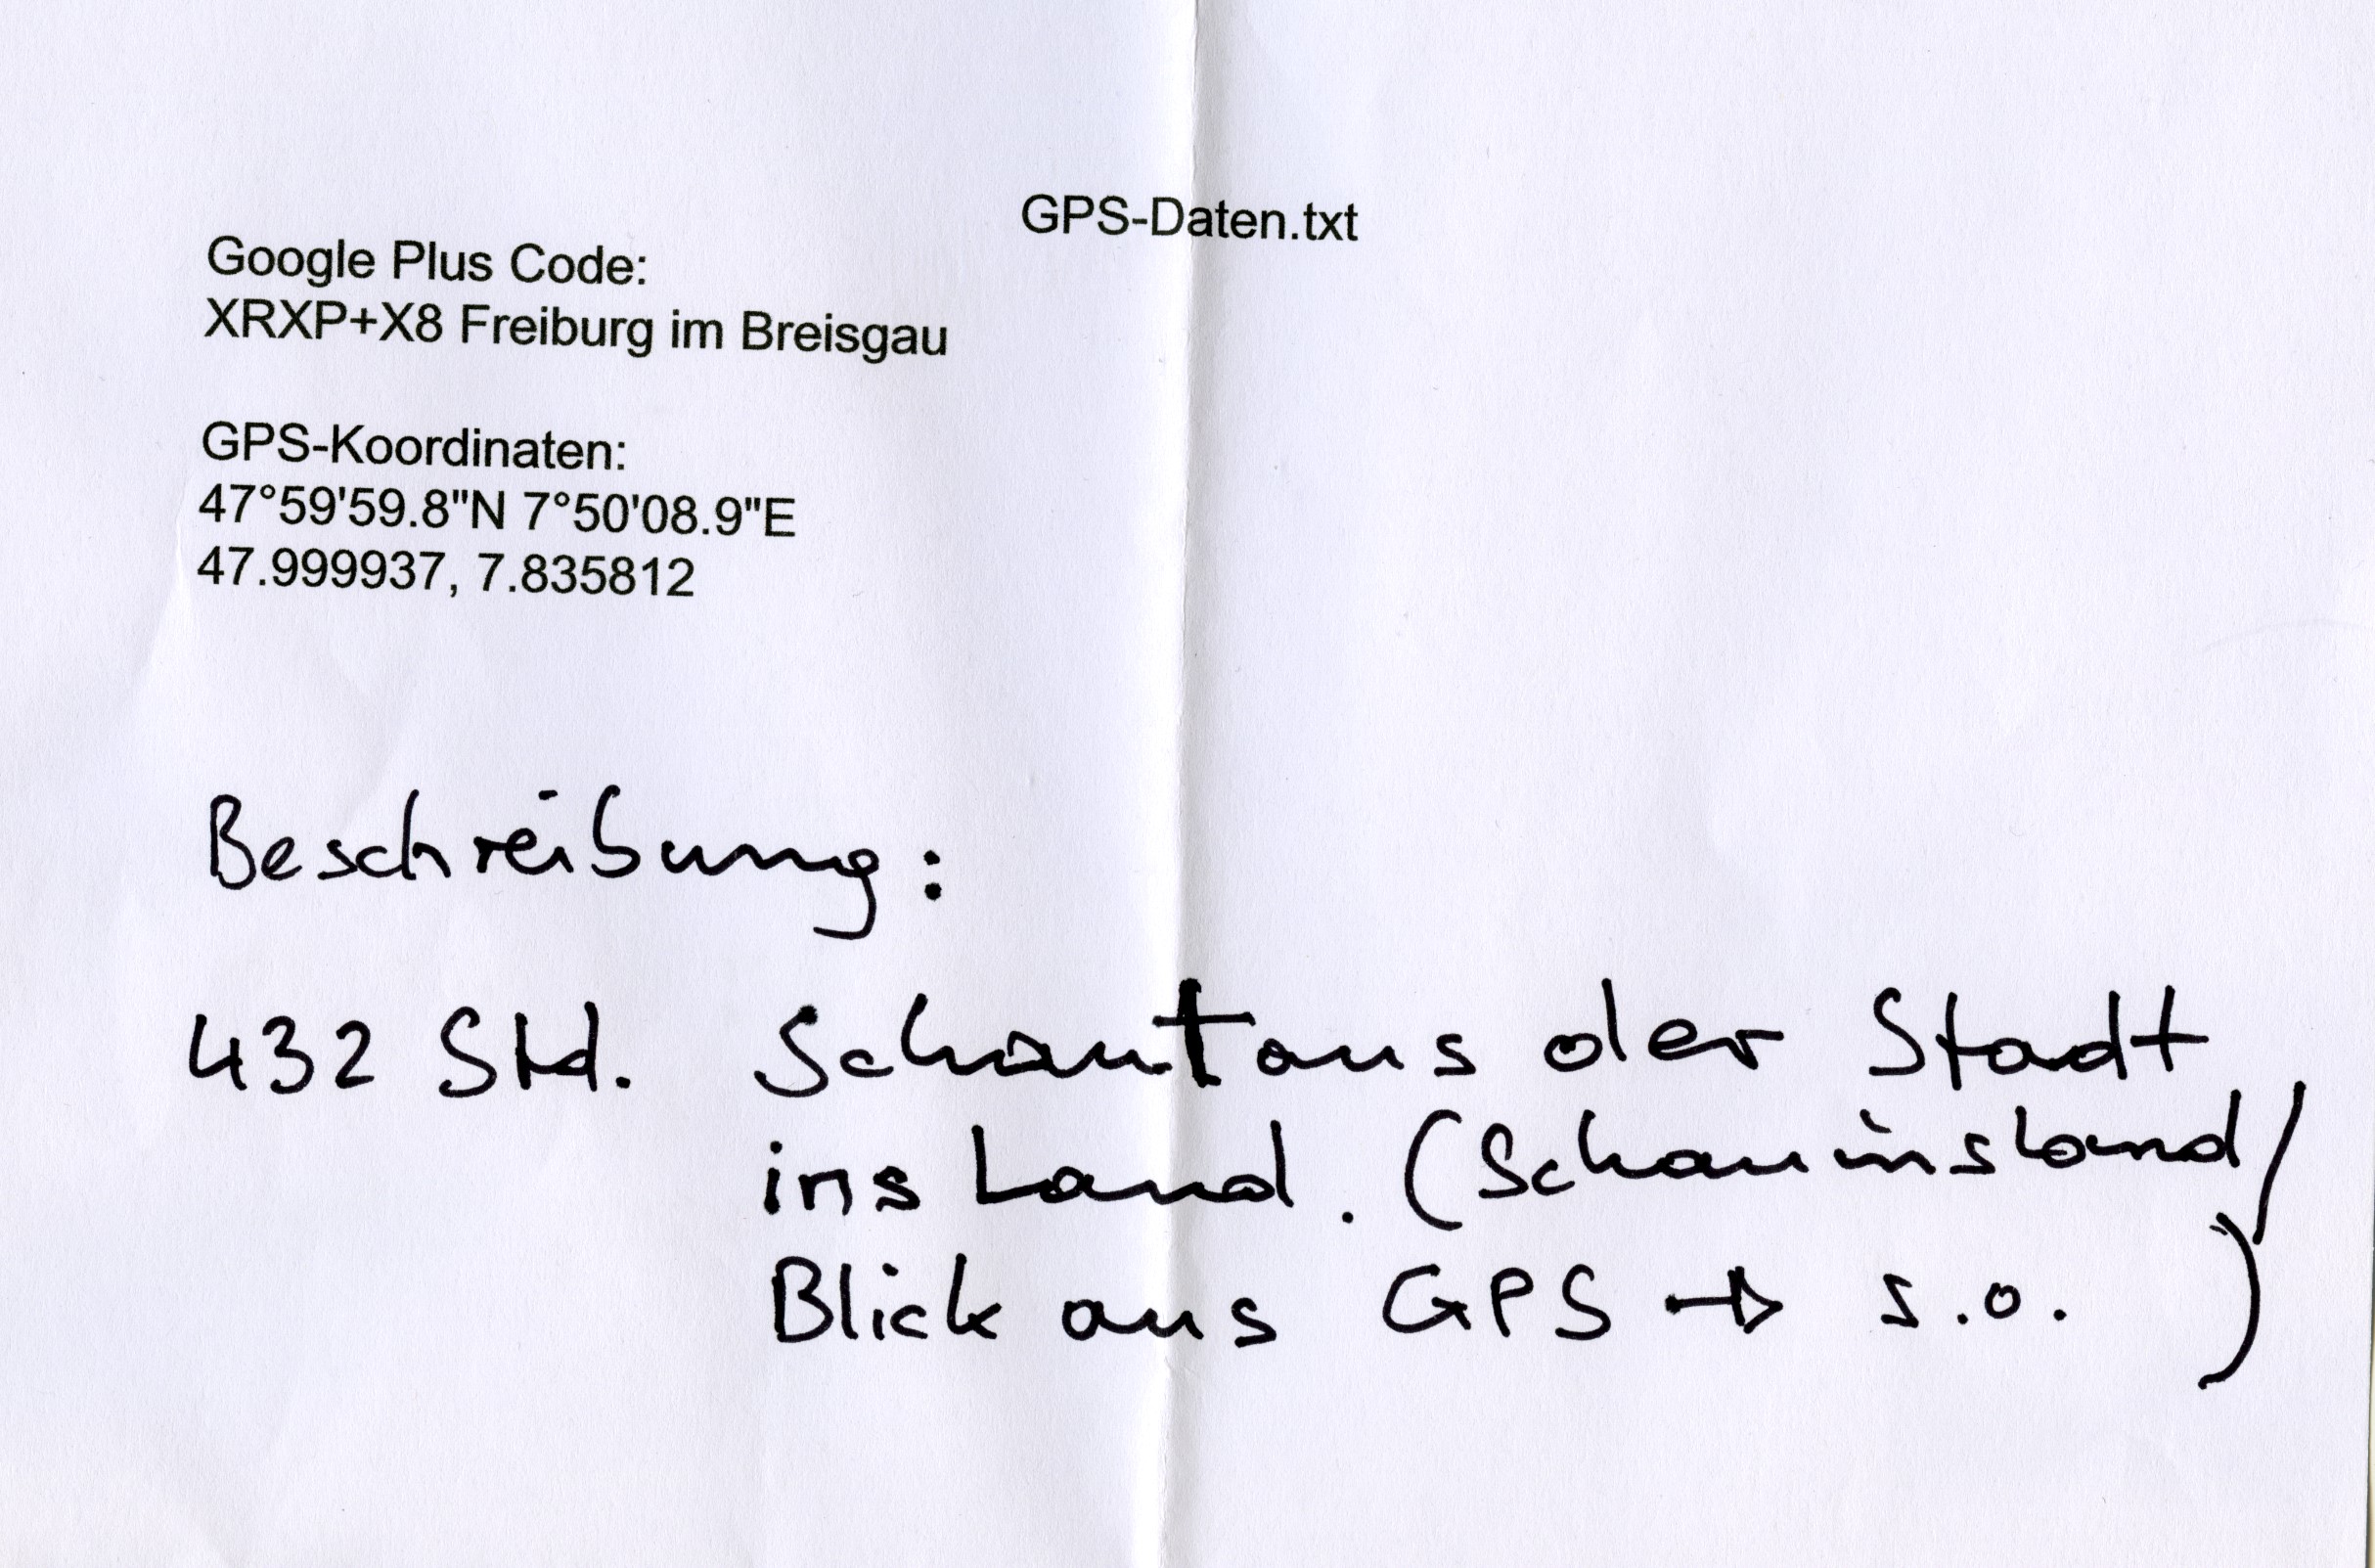 GPS-Daten.txt
Google Plus Code:
XRXP+X8 Freiburg im Breisgau
GPS-Koordinaten:
47°59'59.8"N 7°50'08.9"E
47.999937, 7.835812
Beschreibung:
432 Std. Schaut aus der Stadt
ins Land. (Schauinsland/
Blick aus GPS → s.o. )